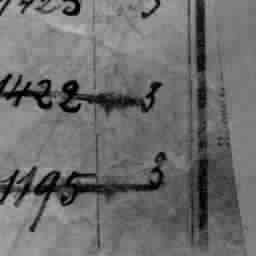 1423 3
1422 — 3
1195 — 3